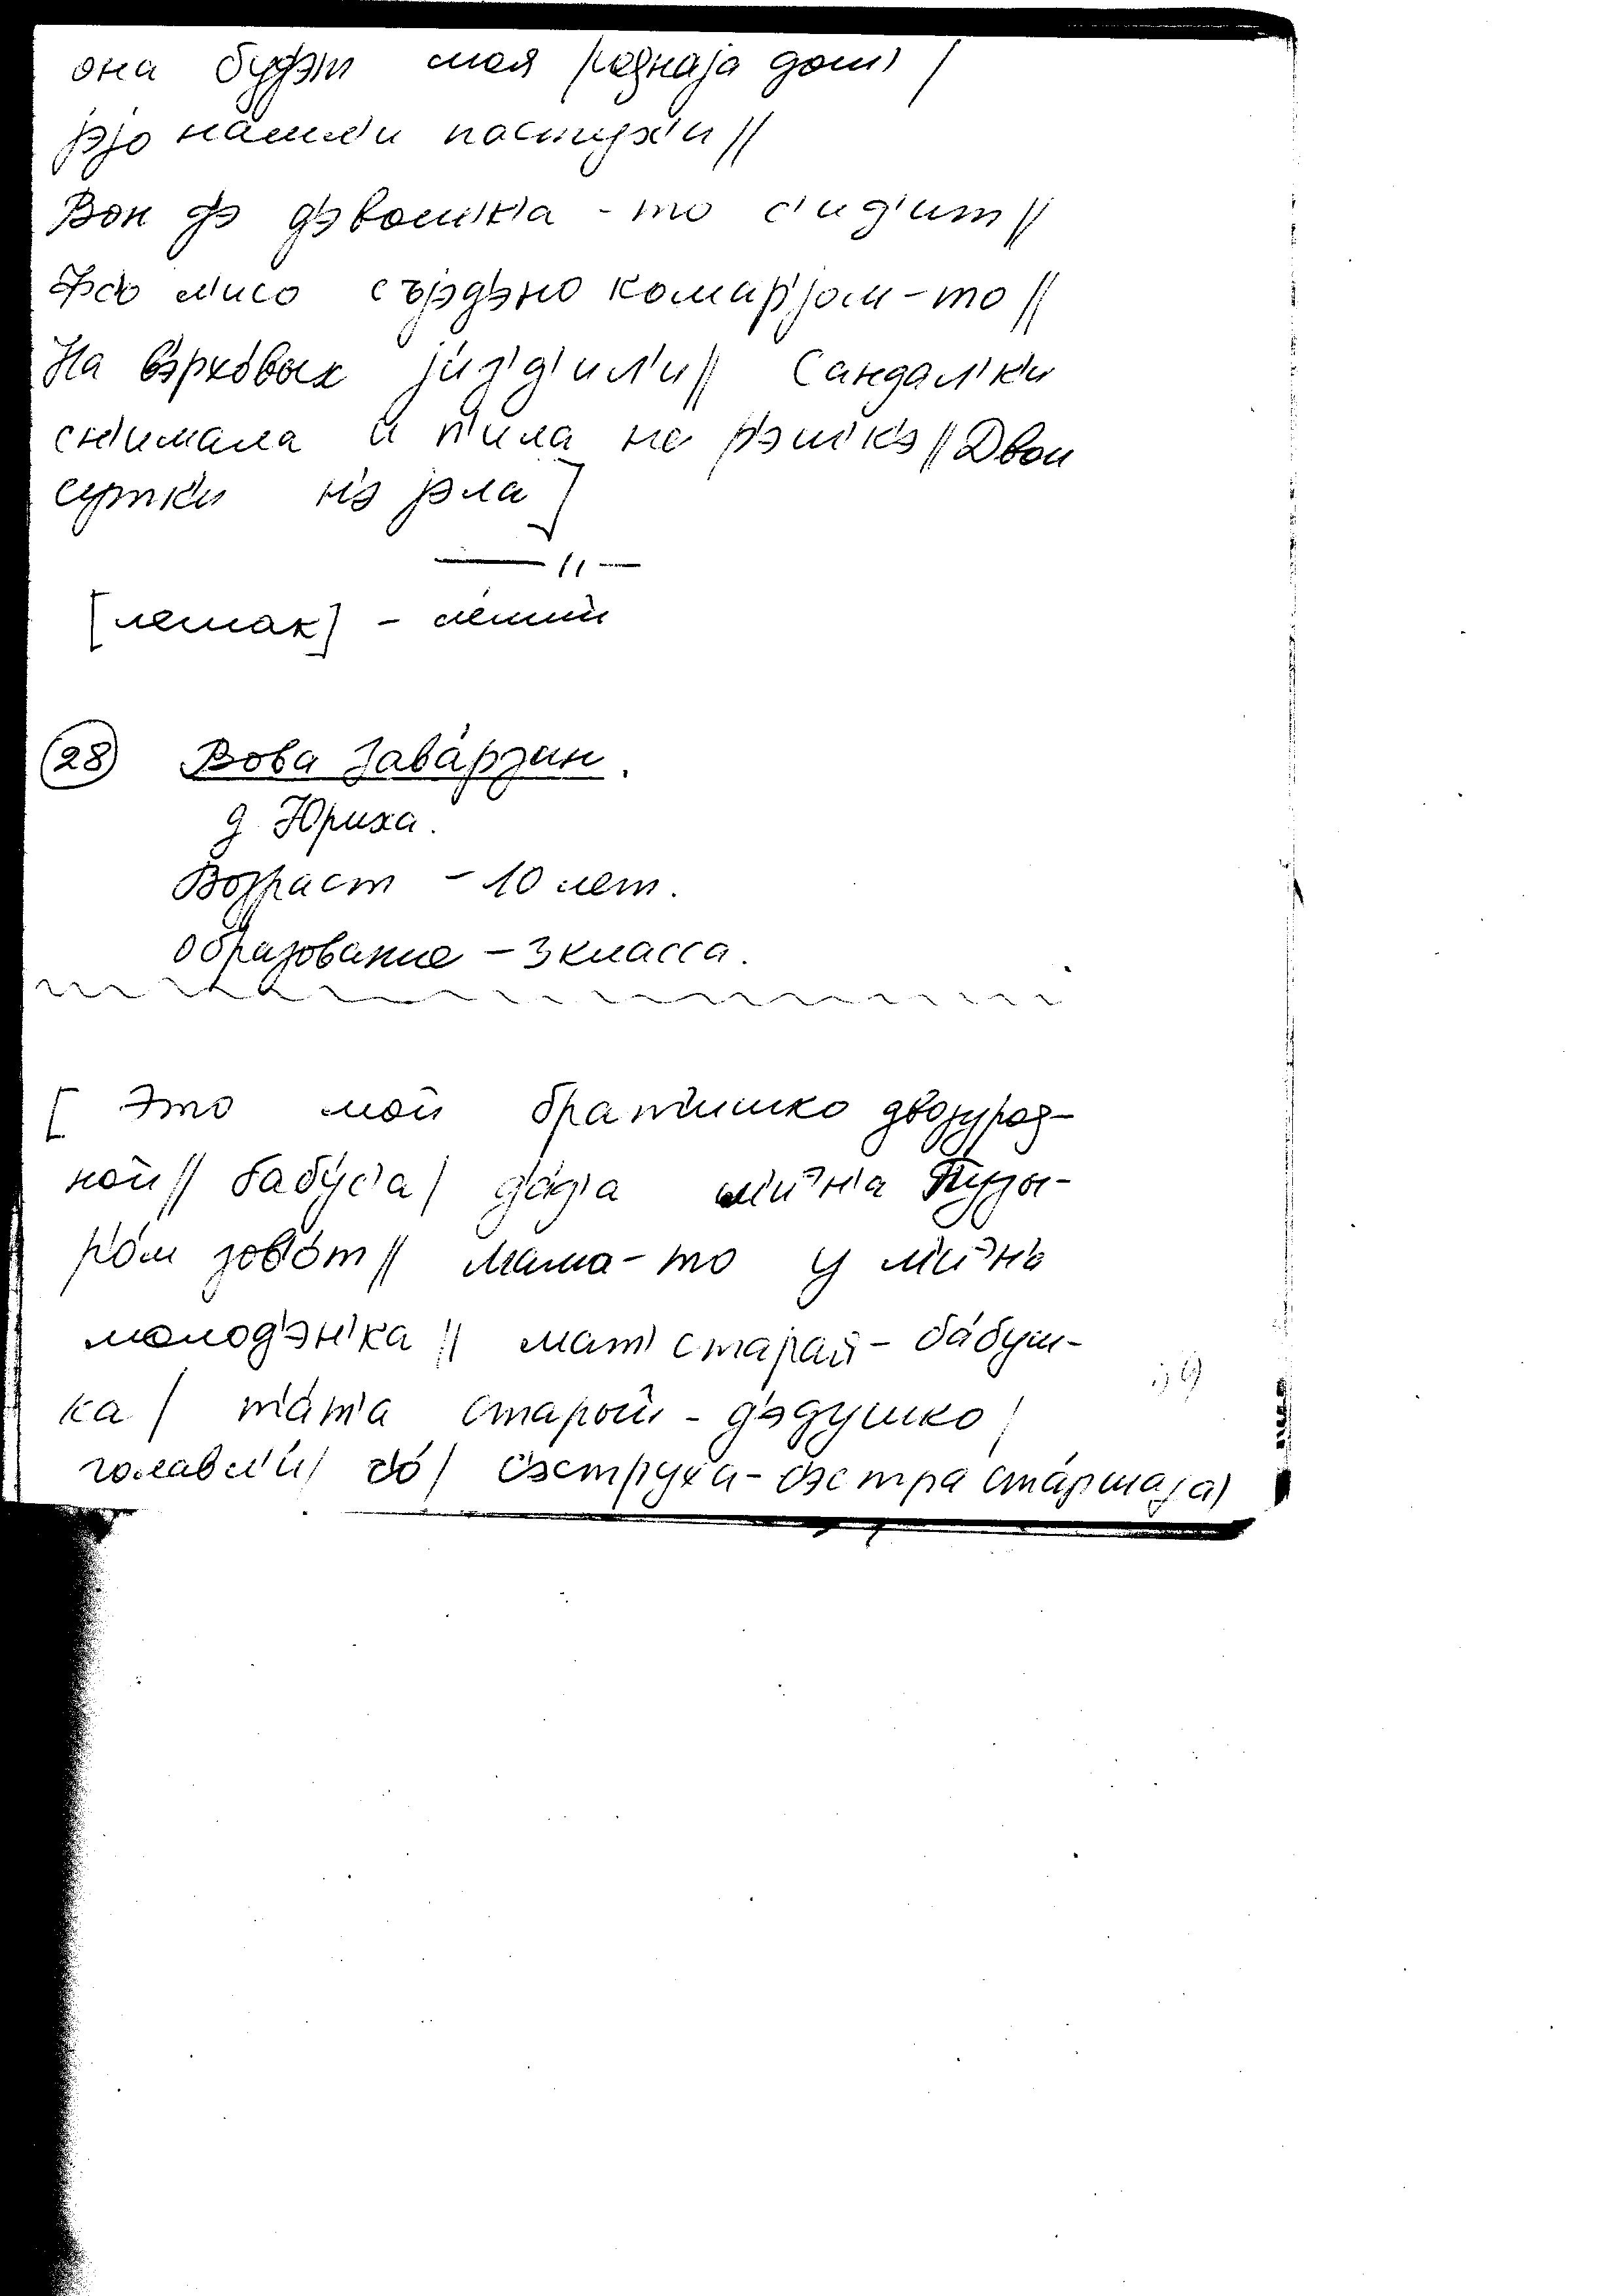 она буд'эт моя роднаjа дош' /
jэjо нашл'и пастух'и //
Вон д'э д'эвош'к'а - то с'ид'ит //
Фс'о л'исо съjэд'эно комар'jом - то //
На в'эрхо́вых jи́з'д'ил'и // Сандал'к'и
сн'имала и п'ила на р'эш'к'э // Двои
сутк'и н'э jэла ]
— 〃 —
[лешак] - ле́ший
28 Вова Зава́рзин.
д. Юриха.
Возраст - 10 лет.
Образование - 3 класса.
[ Это мой брат'ишко двоjурод-
ной // бабу́с'а / д'а́д'а м'иэн'а Пузы-
р'о́м зову́т // Мама - то у м'иэн'а
молод'эн'ка // мат' старай - ба́буш-
ка / т'а́т'а старой - д'э́душко /
голавл'и́ / с'о́ / с'эструха - с'эстра ста́ршаjа /
39